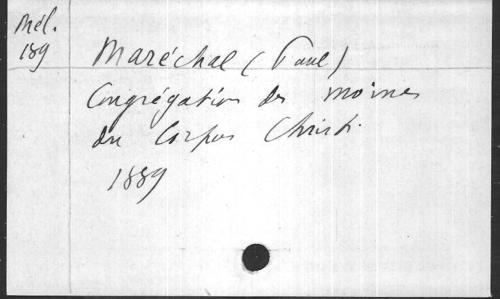 Mél.
189
Maréchal (Paul)
Congrégation des moines
du Corpus Christi.
1889